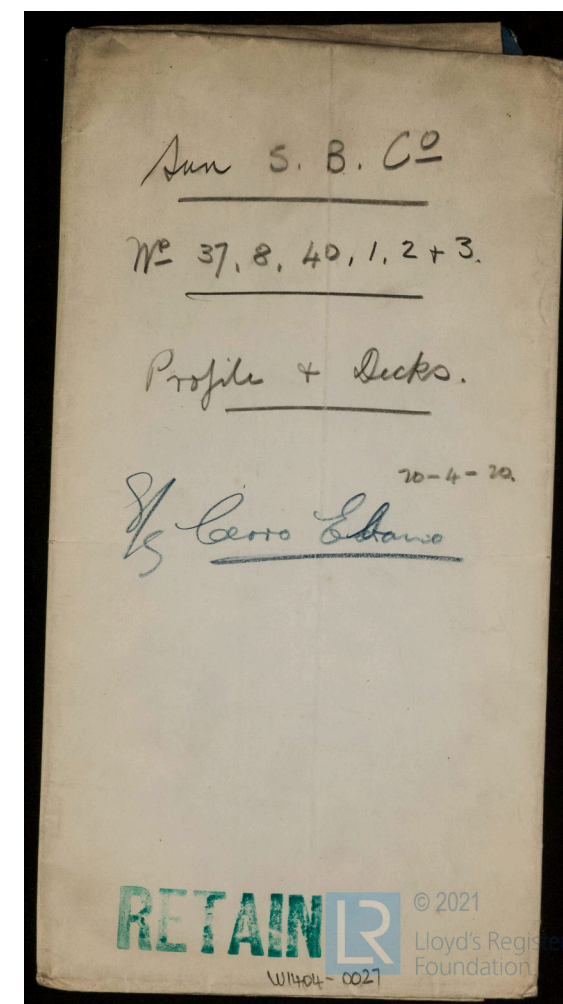 Sun S. B. Co
No 37, 8, 40, 1, 2 + 3.
Profile + Decks.
20-4-20.
S/S Cerro Ebano
RETAIN
LR
© 2021
Lloyd's Registe
Foundation
W1404-0027